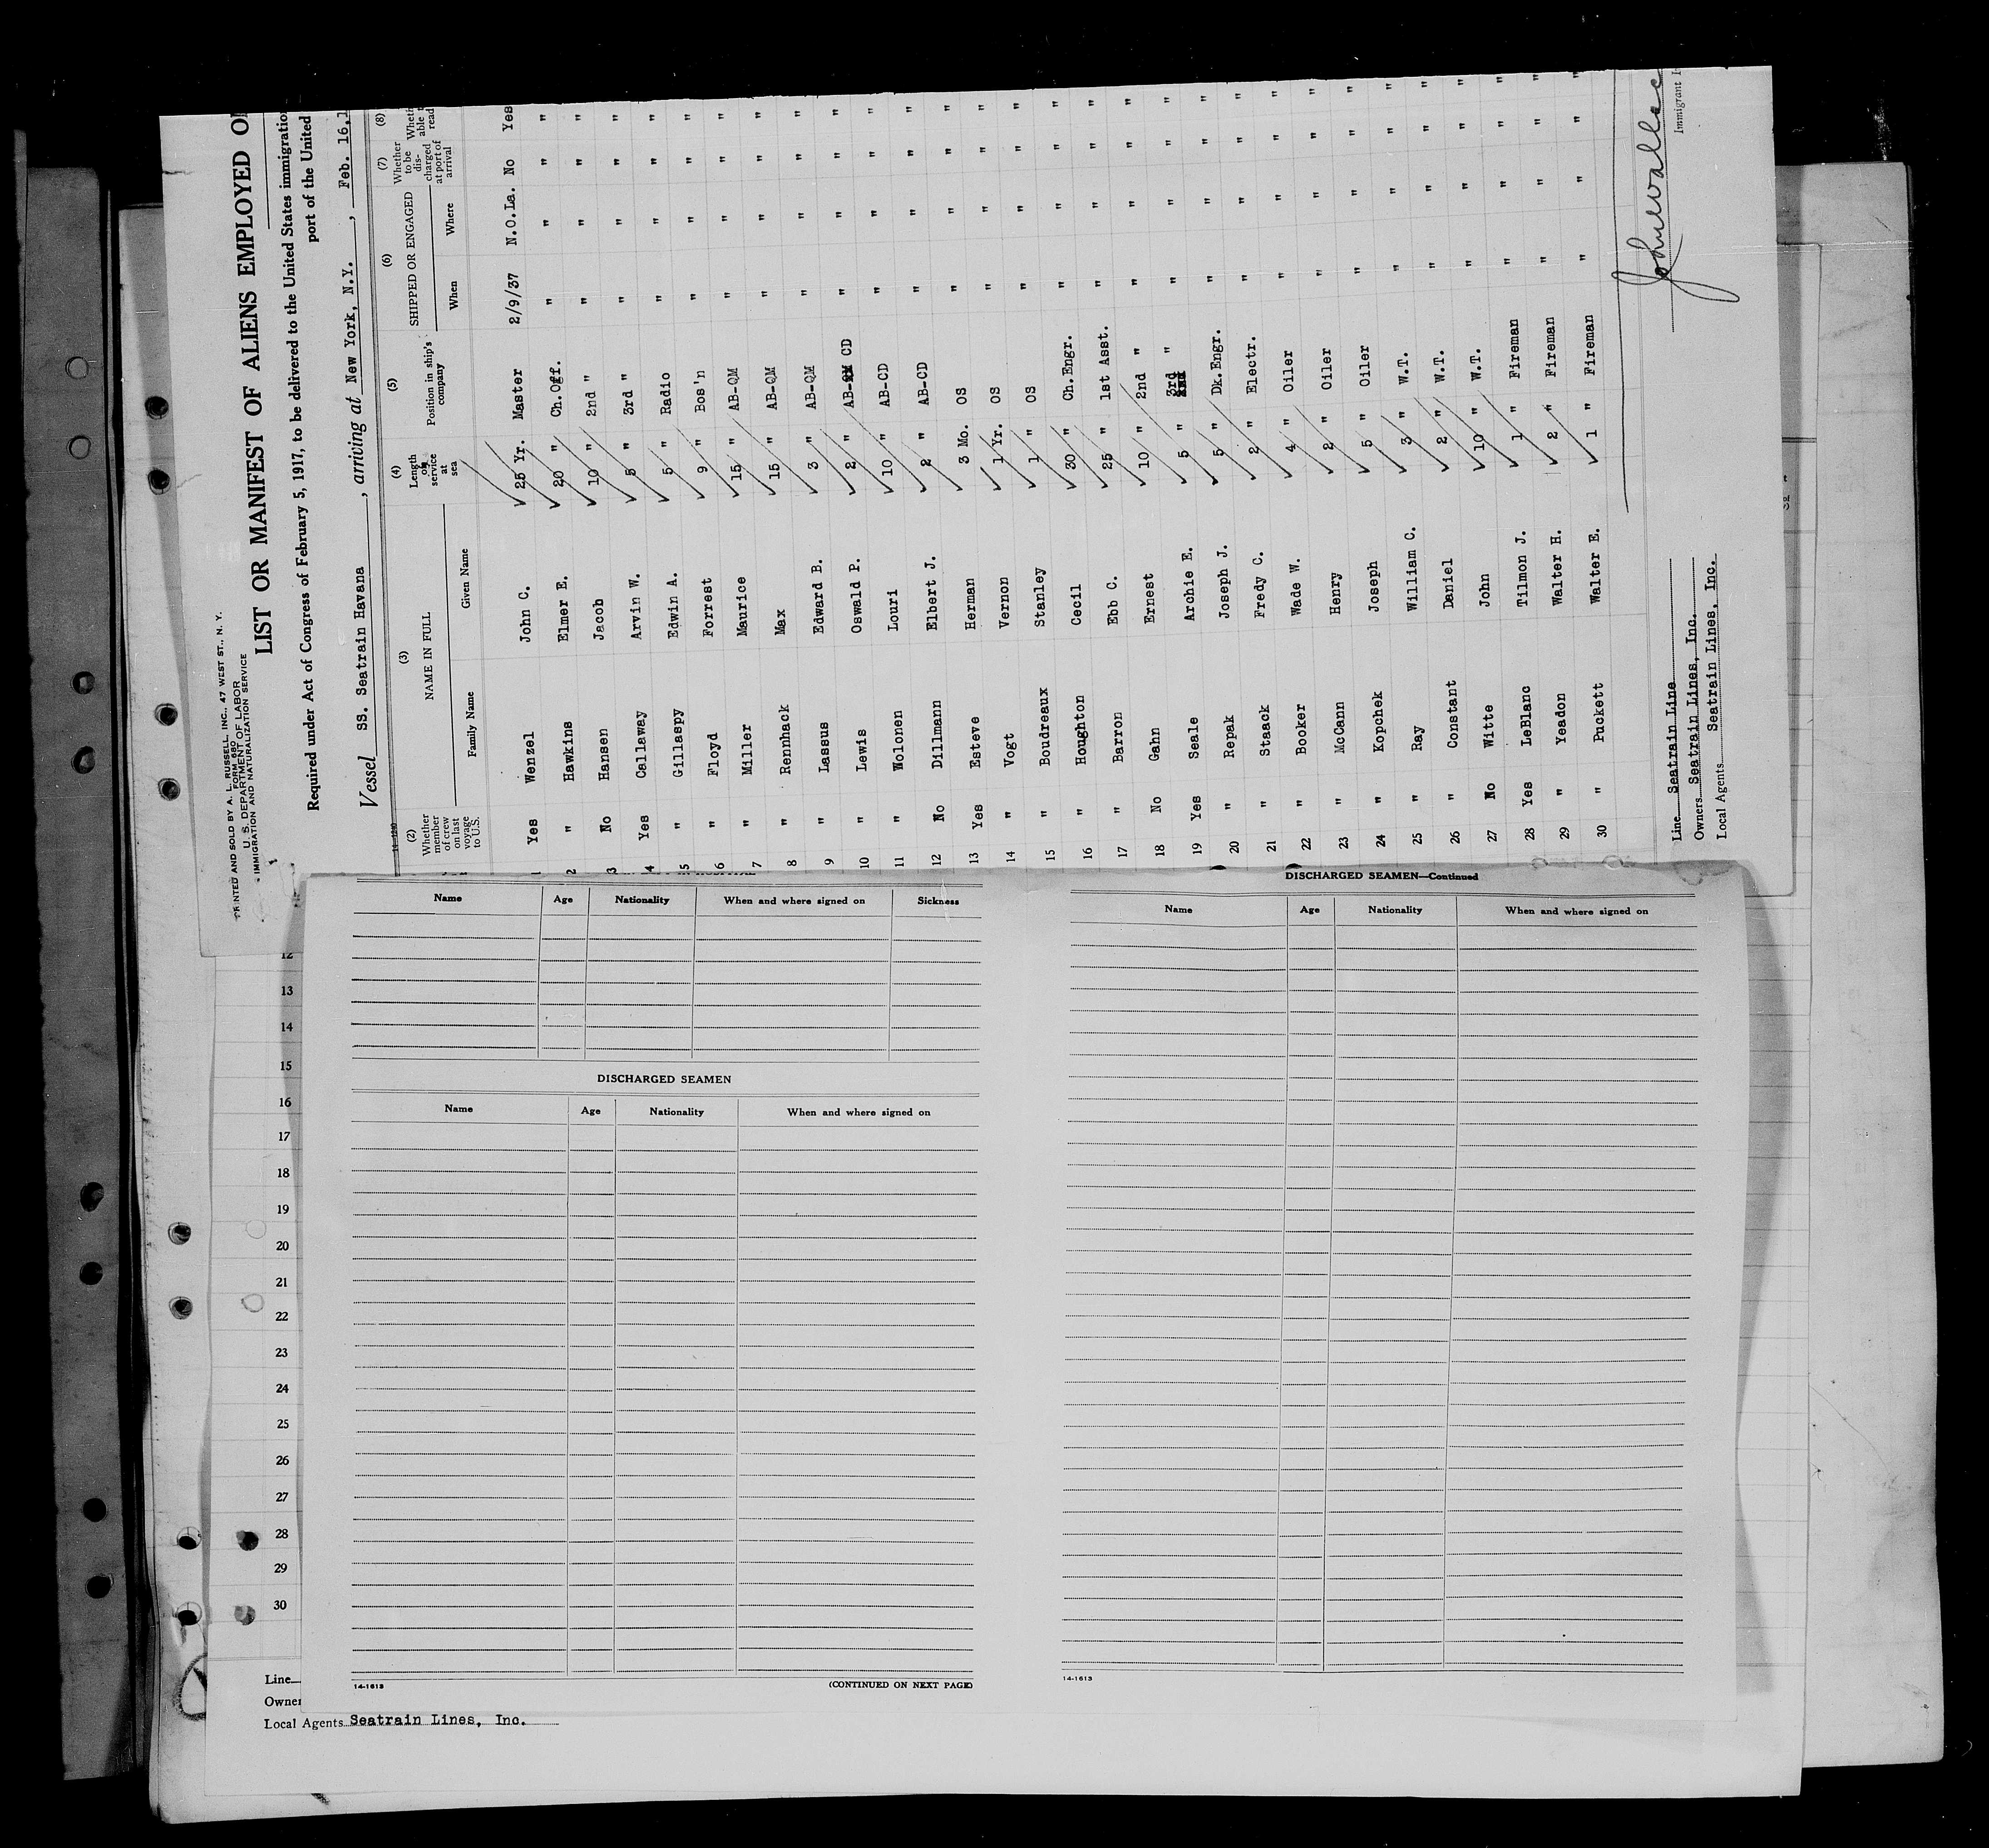 PRINTED AND SOLD BY A. L. RUSSELL, INC., 47 WEST ST., N. Y.
FORM 680
U. S. DEPARTMENT OF LABOR
IMMIGRATION AND NATURALIZATION SERVICE
LIST OR MANIFEST OF ALIENS EMPLOYED ON
Required under Act of Congress of February 5, 1917, to be delivered to the United States immigration
port of the United
Vessel SS. Seatrain Havana, arriving at New York, N.Y., Feb. 16,1
(2) Whether member of crew on last voyage to U.S. (3) NAME IN FULL Family Name Given Name (4) Length of service at sea (5) Position in ship's company (6) SHIPPED OR ENGAGED When Where (7) Whether to be discharged at port of arrival (8) Whether able to read
1 Yes Wenzel John C. 25 Yr. Master 2/9/37 N.O.La. No Yes
2 " Hawkins Elmer E. 20 " Ch.Off. " " " "
3 No Hansen Jacob 10 " 2nd " " " " "
4 Yes Callaway Arvin W. 5 " 3rd " " " " "
5 " Gillaspy Edwin A. 5 " Radio " " " "
6 " Floyd Forrest 9 " Bos'n " " " "
7 " Miller Maurice 15 " AB-QM " " " "
8 " Rennhack Max 15 " AB-QM " " " "
9 " Lassus Edward B. 3 " AB-QM " " " "
10 " Lewis Oswald P. 2 " AB- CD " " " "
11 " Wolonen Louri 10 " AB-CD " " " "
12 No Dillmann Elbert J. 2 " AB-CD " " " "
13 Yes Esteve Herman 3 Mo. OS " " " "
14 " Vogt Vernon 1 Yr. OS " " " "
15 " Boudreaux Stanley 1 " OS " " " "
16 " Houghton Cecil 30 " Ch.Engr. " " " "
17 " Barron Ebb C. 25 " 1st Asst. " " " "
18 No Gahn Ernest 10 " 2nd " " " " "
19 Yes Seale Archie E. 5 " 3rd " " " " "
20 " Repak Joseph J. 5 " Dk.Engr. " " " "
21 " Staack Fredy C. 2 " Electr. " " " "
22 " Booker Wade W. 4 " Oiler " " " "
23 " McCann Henry 2 " Oiler " " " "
24 " Kopchek Joseph 5 " Oiler " " " "
25 " Ray William C. 3 " W.T. " " " "
26 " Constant Daniel 2 " W.T. " " " "
27 No Witte John 10 " W.T. " " " "
28 Yes LeBlanc Tilmon J. 1 " Fireman " " " "
29 " Yeadon Walter H. 2 " Fireman " " " "
30 " Puckett Walter E. 1 " Fireman " " " "
Line Seatrain Line
Owners Seatrain Lines, Inc.
Local Agents Seatrain Lines, Inc.
John Wallace
Immigrant I
Name Age Nationality When and where signed on Sickness
DISCHARGED SEAMEN
Name Age Nationality When and where signed on
14-1613 (CONTINUED ON NEXT PAGE)
DISCHARGED SEAMEN—Continued
Name Age Nationality When and where signed on
14-1613
12
13
14
15
16
17
18
19
20
21
22
23
24
25
26
27
28
29
30
Line
Owner
Local Agents Seatrain Lines, Inc.